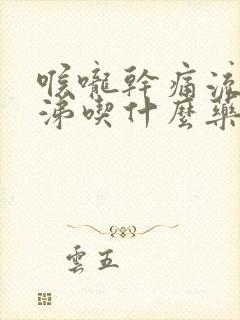 喉嚨幹痛流
涕喫什麼藥
雲五